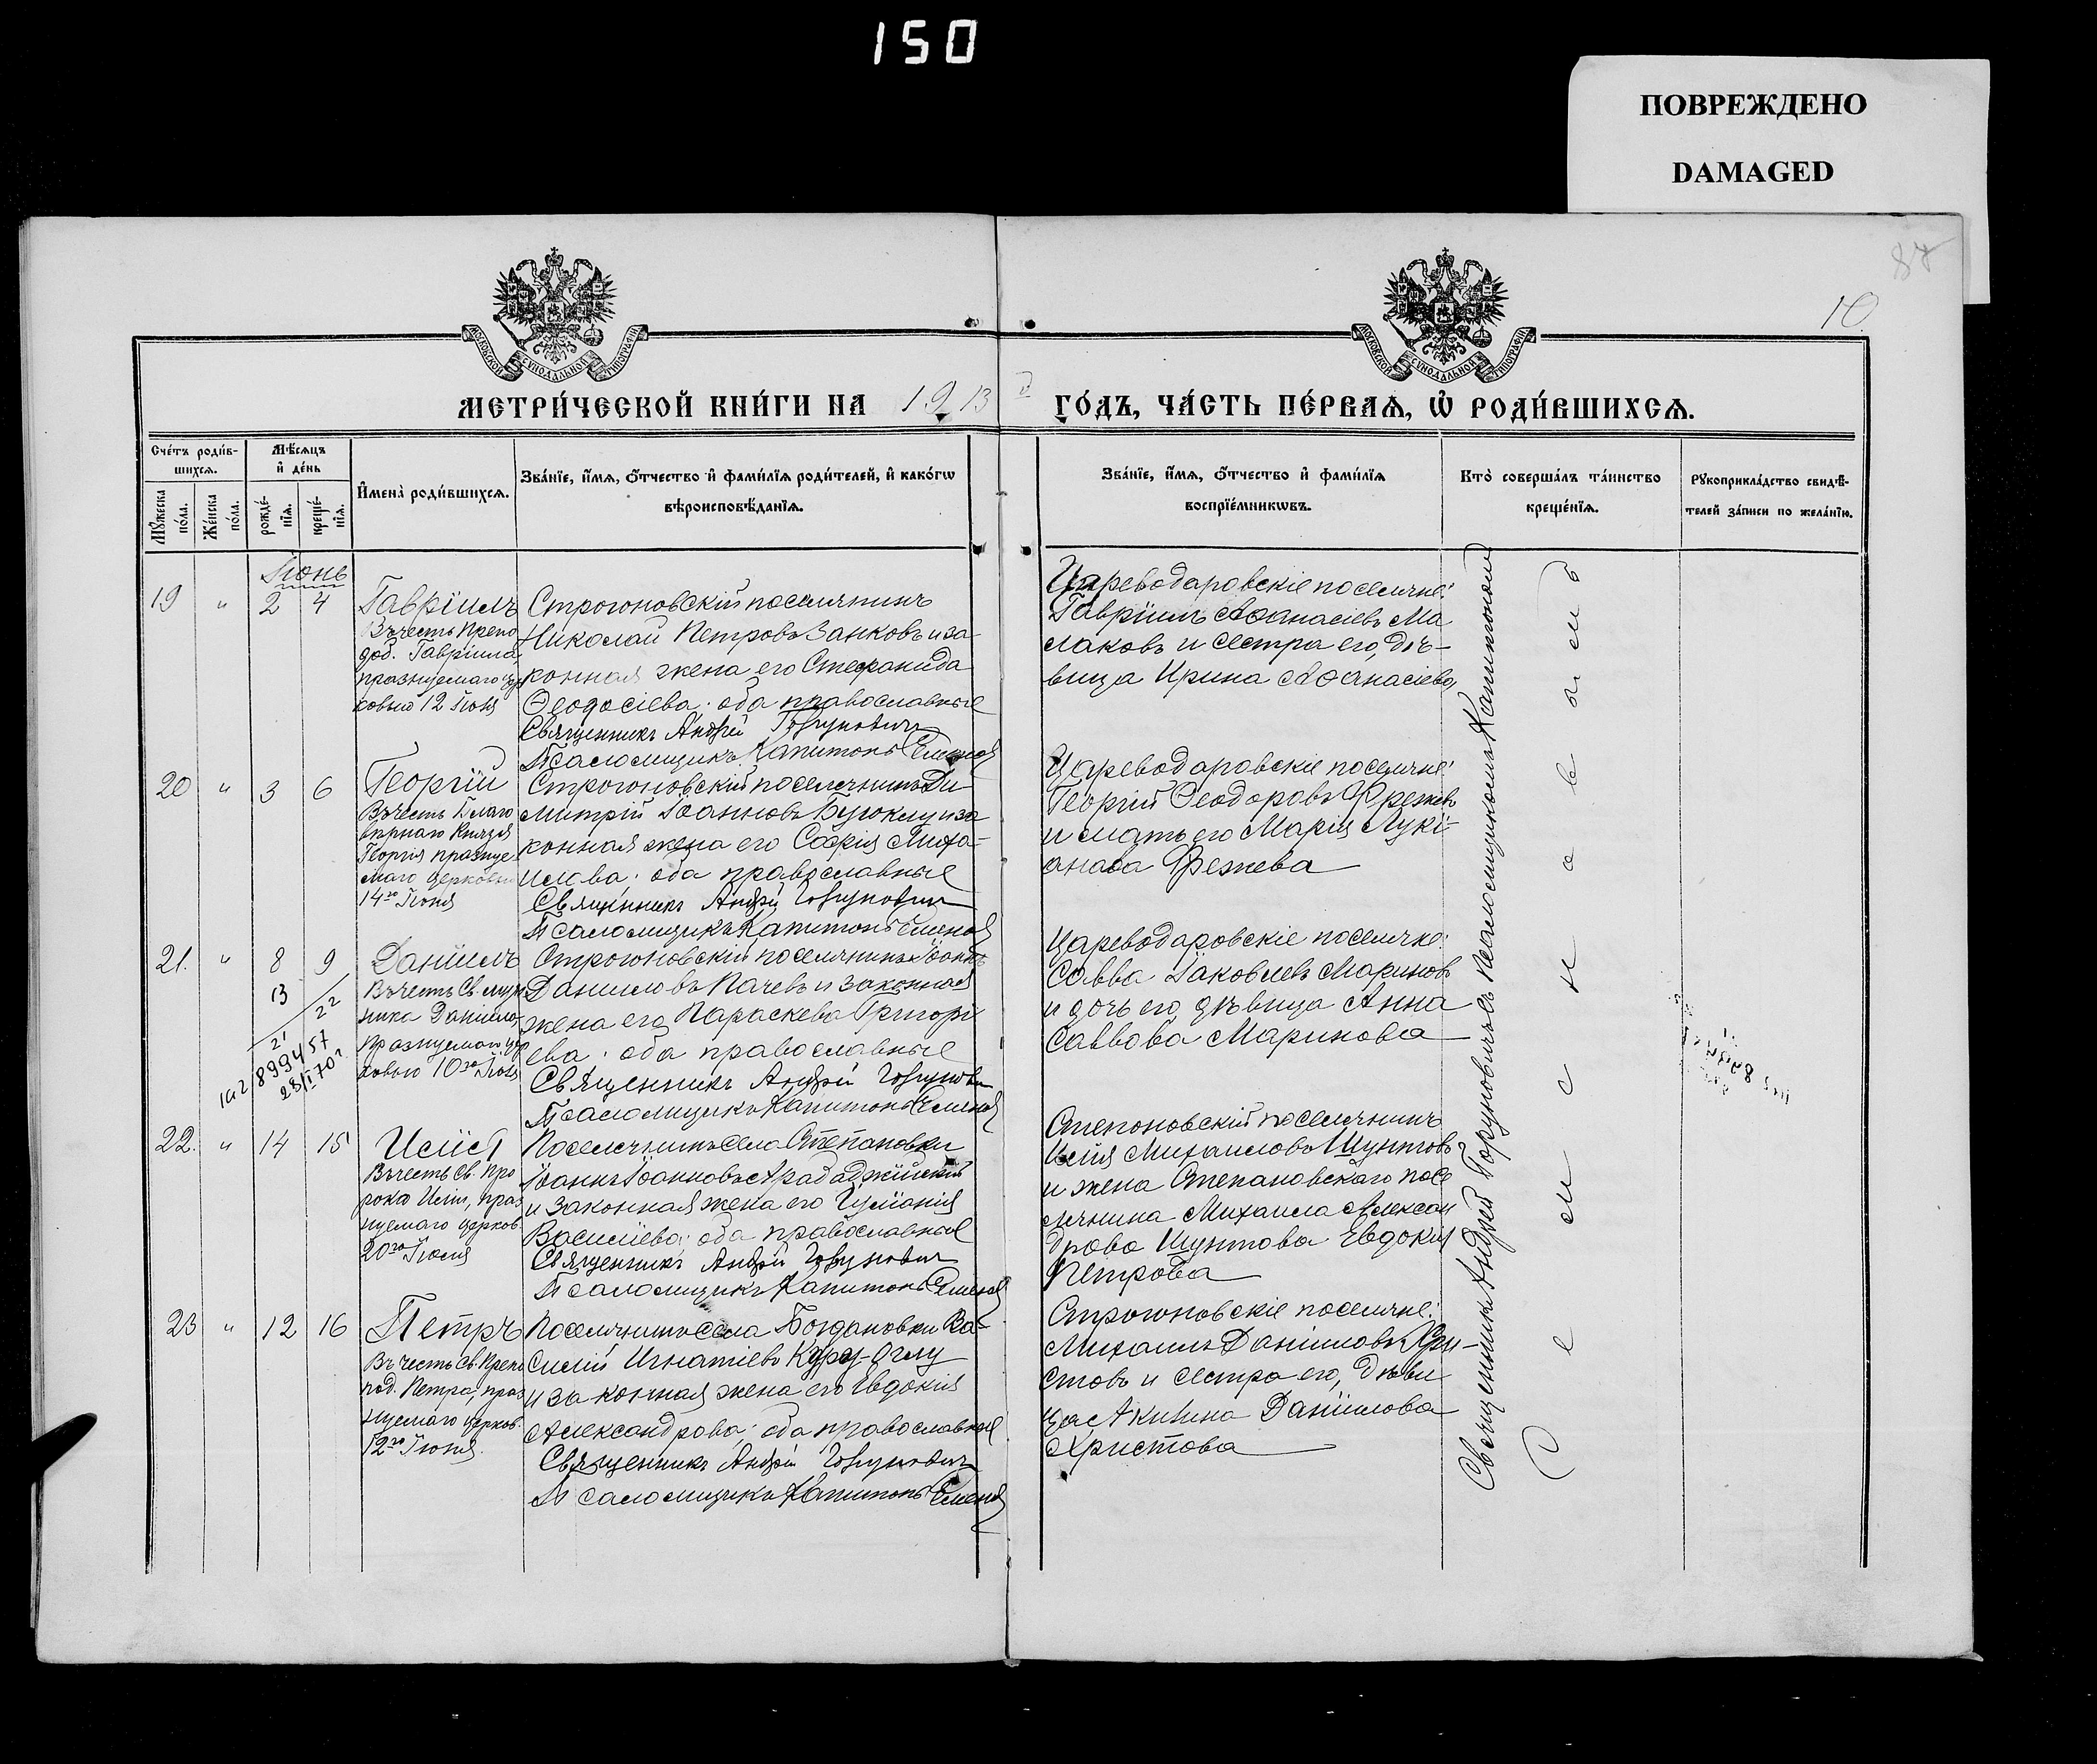 150
ПОВРЕЖДЕНО
DAMAGED
87
10
МОСКОВСКОЙ СѴНОДАЛЬНОЙ ТИПОГРАФІИ
МОСКОВСКОЙ СѴНОДАЛЬНОЙ ТИПОГРАФІИ
МЕТРИ́ЧЕСКОЙ КНИ́ГИ НА 1913 ГО́ДЪ, ЧА́СТЬ ПЕ́РВАѦ, Ѡ҆ РОДИ́ВШИХСѦ.
Сче́тъ роди́в-
шихсѧ.
Мꙋ́жеска по́ла.
Же́нска по́ла.
Мѣ́сѧцъ
и҆ де́нь
рожде́-
нїѧ.
креще́-
нїѧ.
И҆мена̀ роди́вшихсѧ.
Зва́нїе, и҆́мѧ, ѻ҆́тчество и҆ фами́лїѧ роди́телей, и҆ како́гѡ
вѣроисповѣ́данїѧ.
Зва́нїе, и҆́мѧ, ѻ҆́тчество и҆ фами́лїѧ
воспрїе́мникѡвъ.
Кто̀ соверша́лъ та́инство
креще́нїѧ.
Рꙋкоприкла́дство свидѣ́-
телей за́писи по жела́нїю.
Іюнь
19 " 2 4
Гавріилъ
Въ честь Препо
доб. Гавріила,
празнуемаго цер
ковью 12 Іюня
Строгоновскій поселянинъ
Николай Петровъ Занковъ и за-
конная жена его Стефанида
Ѳеодосіева: оба православные
Священникъ Андрій Горуновичъ
Псаломщикъ Капитонъ
Цареводаровскіе поселяне:
Гавріилъ Аѳанасіевъ Ма
лаковъ и сестра его, дѣ-
вица Ирина Аѳанасіева
20 " 3 6
Георгій
Въ честь Благо
вѣрнаго Князя
Георгія празнуе
маго церковью
14го Іюня
Строгоновскій поселянинъ Ди
митрій Іоанновъ Буюклу и за
конная жена его Софія Миха-
илова: оба православные
Священникъ Андрій Горуновичъ
Псаломщикъ Капитонъ
Цареводаровскіе поселяне:
Георгій Ѳеодоровъ Фрежевъ
и мать его Марія Лукі-
анова Фрежева
21. " 8 9
13/22
21
899457
28/I 70 г
Даніилъ
Въ честь Св. муче
ника Даніила,
празнуемаго цер
ковью 10го Іюля
Строгоновскій поселянинъ Іоаннъ
Даниловъ Пачевъ и законная
жена его Параскева Григорі
ева: оба православные
Священникъ Андрій Горуновичъ
Псаломщикъ Капитонъ
Цареводаровскіе поселяне:
Савва Іаковлевъ Мариновъ
и дочь его, дѣвица Анна
Саввова Маринова
22. " 14 15
Илія
Въ честь Св. Про
рока Иліи, праз
нуемаго церков.
20го Іюля
Поселянинъ села Степановки
Іоаннъ Іоанновъ Арабаджійскій
и законная жена его Іуліанія
Василіева: оба православные
Священникъ Андрій Горуновичъ
Псаломщикъ Капитонъ
Степановскій поселянинъ
Илія Михаиловъ Шунтовъ
и жена Степановскаго посе
лянина Михаила Алексан
дрова Шунтова Евдокія
Петрова
23 " 12 16
Петръ
Въ честь Св. Препо
под. Петра, праз
нуемаго церков.
12го Іюня.
Поселянинъ села Богдановки Ва-
силій Игнатіевъ Куру-Оглу
и законная жена его Евдокія
Александрова: оба православные
Священникъ Андрій Горуновичъ
Псаломщикъ Капитонъ
Строгоновскіе поселяне:
Михаилъ Даніиловъ Хри-
стовъ и сестра его, дѣви
ца Акилина Даніилова
Христова
Священникъ Андрей Горуновичъ съ псаломщикомъ Капитономъ